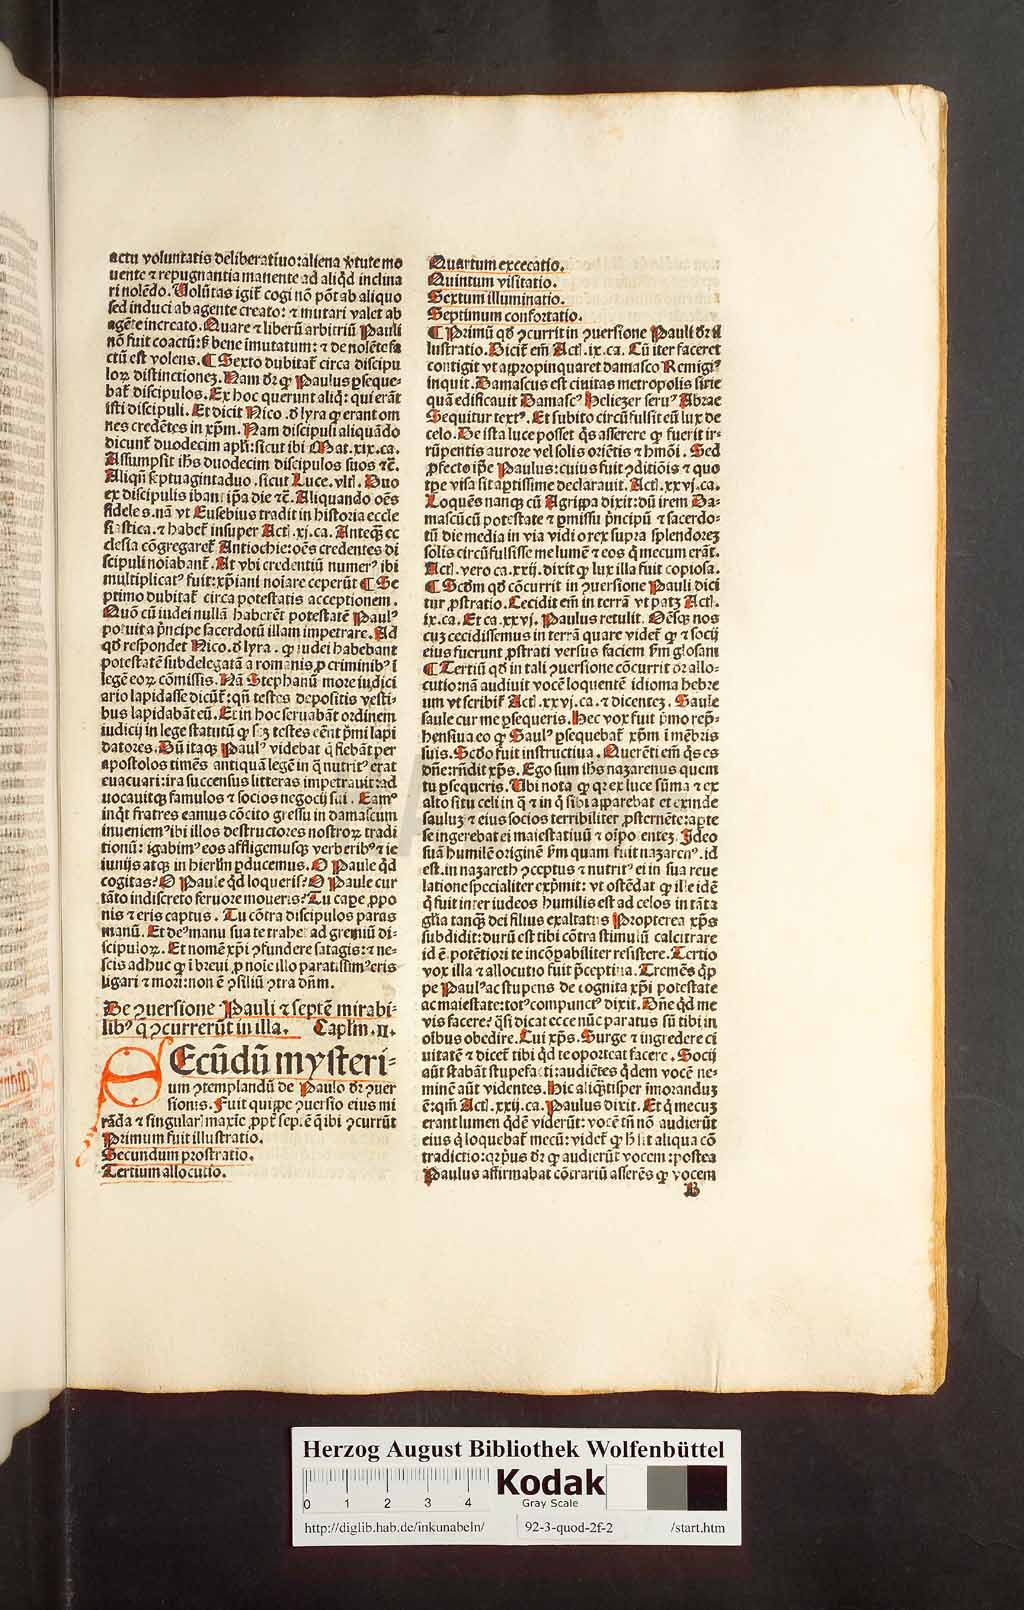 actu voluntatis deliberatiuo: aliena ꝟtute mo
uente ⁊ repugnantia manente ad aliqd̓ inclina
ri nolẽdo. Volũtas igit᷑ cogi nõ põt ab aliquo
sed induci ab agente creato: ⁊ mutari valet ab
agẽte increato. Quare ⁊ liberũ arbitriũ Pauli
nõ fuit coactũ: sꝫ bene imutatum: ⁊ de nolẽte fa
ctũ est volens. ¶ Sexto dubitat᷑ circa discipu
loꝝ distinctioneꝫ. Nam dr̃ ꝙ Paulus ꝑseque⸗
bat᷑ discipulos. Ex hoc querunt aliq̃: qui erãt
isti discipuli. Et dicit Nico. d̓ lyra ꝙ erant om
nes credẽtes in xp̃m. Nam discipuli aliquãdo
dicunt᷑ duodecim apl̃i: sicut ibi Mat. xix. ca.
Assumpsit ih̃s duodecim discipulos suos ⁊c̃.
Aliqñ septuagintaduo. sicut Luce. vlt̃. Duo
ex discipulis ibant ip̃a die ⁊c̃. Aliquando oẽs
fideles. nã vt Eusebius tradit in historia eccle
siastica. ⁊ habet᷑ insuper Act̃. xj. ca. Anteqꝫ ec
clesia cõgregaret᷑ Antiochie: oẽs credentes di
scipuli noĩabant᷑. At vbi credentiũ numerꝰ ibi
multiplicatꝰ fuit: xp̃iani noĩare ceperũt ¶ Se
ptimo dubitat᷑ circa potestatis acceptionem.
Quõ cũ iudei nullã haberẽt potestatẽ Paulꝰ
potuit a p̃ncipe sacerdotũ illam impetrare. Ad
qd̓ respondet Nico. d̓ lyra. ꝙ iudei habebant
potestatẽ subdelegatã a romanis ꝓ criminibꝰ ĩ
legẽ eoꝝ cõmissis. Nã Stephanũ more iudici
ario lapidasse dicũt᷑: qñ testes depositis vesti⸗
bus lapidabãt eũ. Et in hoc seruabãt ordinem
iudicij in lege statutũ ꝙ sꝫ testes eẽnt p̃mi lapi
datores. Dũ itaqꝫ Paulꝰ videbat q̃ fiebãt per
apostolos timẽs antiquã legẽ in q̃ nutritꝰ erat
euacuari: ira succensus litteras impetrauit: ad
uocauitqꝫ famulos ⁊ socios negocij sui. Eamꝰ
inq̃t fratres eamus cõcito gressu in damascum
inueniemꝰ ibi illos destructores nostroꝝ tradi
tionũ: igabimꝰ eos affligemusqꝫ verberibꝰ ⁊ ie
iunijs atqꝫ in hierl̃m ꝑducemus. O Paule qd̓
cogitas? O Paule qd̓ loqueris? O Paule cur
tãto indiscreto feruore moueris? Tu cape ꝓpo
nis ⁊ eris captus. Tu cõtra discipulos paras
manũ. Et deꝰ manu sua te trahet ad gremiũ di⸗
scipuloꝝ. Et nomẽ xp̃i ꝯfundere satagis: ⁊ ne⸗
scis adhuc ꝙ ĩ breui ꝓ noĩe illo paratissimꝰ eris
ligari ⁊ mori: non ẽ ꝯsiliũ ꝯtra dñm.
De ꝯuersione Pauli ⁊ septẽ mirabi⸗
libꝰ q̃ ꝯcurrerũt in illa. Capl̃m. II.
SEcũdũ mysteri⸗
um ꝯtemplandũ de Paulo dr̃ ꝯuer
sionis. Fuit quippe ꝯuersio eius mi
rãda ⁊ singularĩ maxĩe ꝓpt᷑ septẽ q̃ ibi ꝯcurrũt
Primum fuit illustratio.
Secundum prostratio.
Tertium allocutio.
Quartum excecatio.
Quintum visitatio.
Sextum illuminatio.
Septimum confortatio.
¶ Primũ qd̓ ꝯcurrit in ꝯuersione Pauli dr̃ il
lustratio. Dicit᷑ em̃ Act̃. ix. ca. Cũ iter faceret
contigit vt appropinquaret damasco Remigiꝰ
inquit. Damascus est ciuitas metropolis sirie
quã edificauit Damascꝰ Heliezer seruꝰ Abrae
Sequitur textꝰ. Et subito circũfulsit eũ lux de
celo. De ista luce posset q̃s asserere ꝙ fuerit ir⸗
rũpentis aurore vel solis oriẽtis ⁊ hmõi. Sed
ꝓfecto ip̃e Paulus: cuius fuit ꝯditiõis ⁊ quo
tp̃e visa sit aptissime declarauit. Act̃. xxvj. ca.
Loquẽs nanqꝫ cũ Agrippa dixit: dũ irem Da⸗
mascũ cũ potestate ⁊ ꝑmissu p̃ncipũ ⁊ sacerdo⸗
tũ die media in via vidi o rex supra splendoreꝫ
solis circũfulsisse me lumẽ ⁊ eos q̃ mecum erãt.
Act̃. vero ca. xxij. dixit ꝙ lux illa fuit copiosa.
¶ Scd̃m qd̓ cõcurrit in ꝯuersione Pauli dici
tur ꝓstratio. Cecidit em̃ in terrã vt patꝫ Act̃.
ix. ca. Et ca. xxvj. Paulus retulit. Oẽsqꝫ nos
cuꝫ cecidissemus in terrã quare videt᷑ ꝙ ⁊ socij
eius fuerunt ꝓstrati versus faciem ẜm glosam
¶ Tertiũ qd̓ in tali ꝯuersione cõcurrit dr̃ allo⸗
cutio: nã audiuit vocẽ loquentẽ idioma hebre
um vt scribit᷑ Act̃. xxvj. ca. ⁊ dicenteꝫ. Saule
saule cur me ꝑsequeris. Hec vox fuit p̃mo rep̃⸗
hensiua eo ꝙ Saulꝰ ꝑsequebat᷑ xp̃m ĩ mẽbris
suis. Scd̃o fuit instructiua. Querẽti em̃ q̃s es
dñe: rñdit xp̃s. Ego sum ih̃s nazarenus quem
tu ꝑsequeris. Vbi nota ꝙ qꝛ ex luce sũma ⁊ ex
alto situ celi in q̃ ⁊ in q̃ sibi apparebat et exinde
sauluꝫ ⁊ eius socios terribiliter ꝓsternẽte: apte
se ingerebat ei maiestatiuũ ⁊ oĩpotenteꝫ. Ideo
suã humilẽ originẽ ẜm quam fuit nazarenꝰ. id
est. in nazareth ꝯceptus ⁊ nutritꝰ ei in sua reue
latione specialiter exp̃mit: vt ostẽdat ꝙ ille idẽ
q̃ fuit inter iudeos humilis est ad celos in tãta
gl̃ia tanqꝫ dei filius exaltatus Propterea xp̃s
subdidit: durũ est tibi cõtra stimulũ calcitrare
id ẽ potẽtiori te incõꝑabiliter resistere. Tertio
vox illa ⁊ allocutio fuit p̃ceptiua. Tremẽs q̃p
pe Paulꝰ ac stupens de cognita xp̃i potestate
ac maiestate: totꝰ compunctꝰ dixit. Dñe qd̓ me
vis facere? q̃si dicat ecce nũc paratus sũ tibi in
oĩbus obedire. Cui xp̃s. Surge ⁊ ingredere ci
uitatẽ ⁊ dicet᷑ tibi qd̓ te oporteat facere. Socij
aũt stabãt stupefacti: audiẽtes q̃dem vocẽ ne⸗
minẽ aũt videntes. Hic aliq̃tisper ĩmoranduꝫ
ẽ: qm̃ Act̃. xxij. ca. Paulus dixit. Et q̃ mecuꝫ
erant lumen q̃dẽ viderũt: vocẽ tñ nõ audierũt
eius q̃ loquebat᷑ mecũ: videt᷑ ꝙ h̓ sit aliqua cõ
tradictio: qꝛ p̃us dr̃ ꝙ audierũt vocem: postea
Paulus affirmabat cõtrariũ asserẽs ꝙ vocem
B
Herzog August Bibliothek Wolfenbüttel
0 1 2 3 4
Kodak
Gray Scale
http://diglib.hab.de/inkunabeln/ 92-3-quod-2f-2 /start.htm